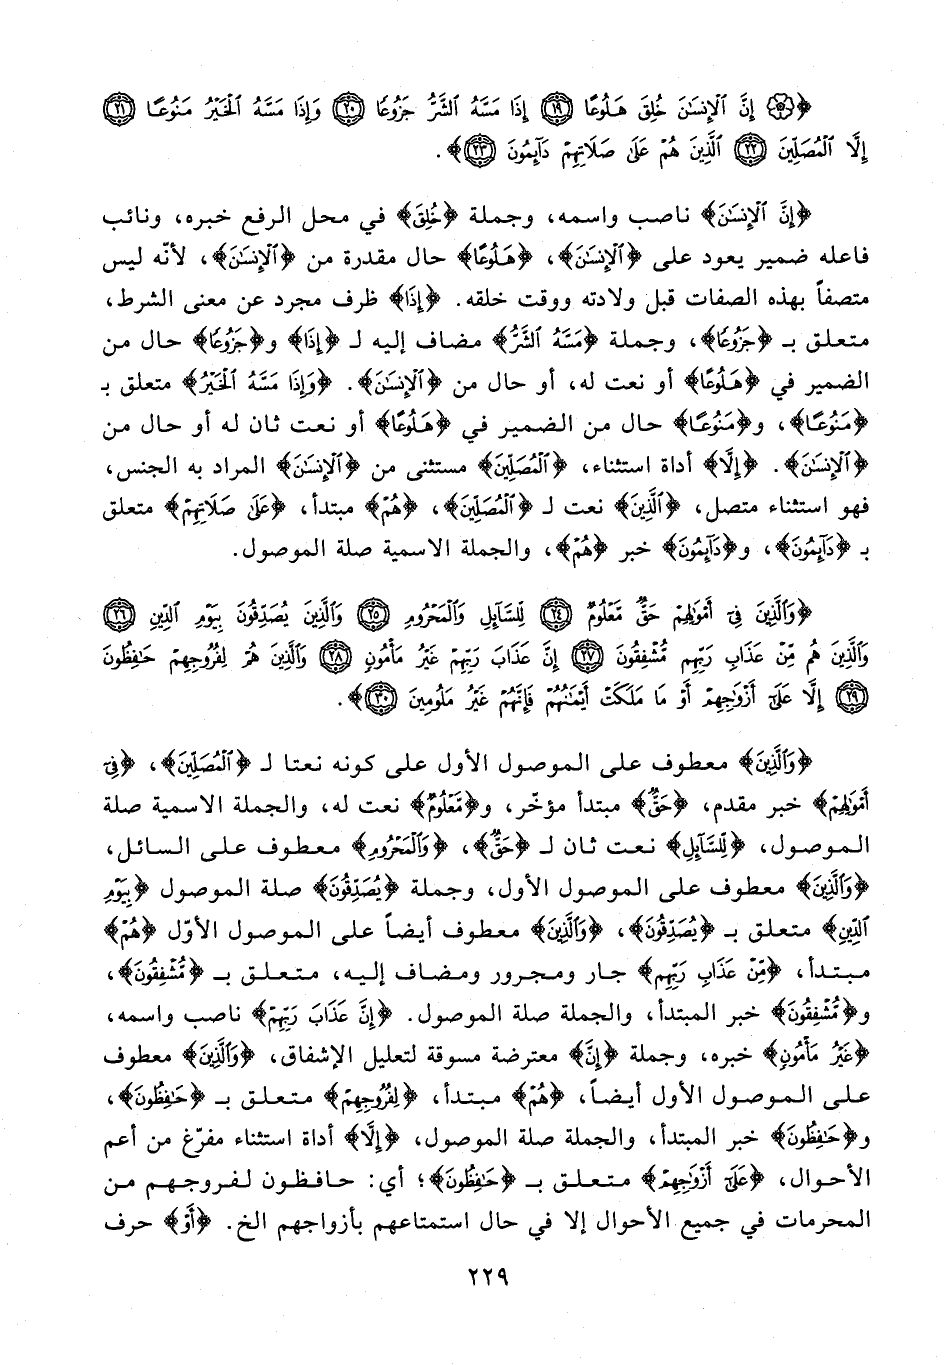 ﴿۞ إِنَّ ٱلْإِنسَـٰنَ خُلِقَ هَلُوعًا ﴿١٩﴾ إِذَا مَسَّهُ ٱلشَّرُّ جَزُوعًا ﴿٢٠﴾ وَإِذَا مَسَّهُ ٱلْخَيْرُ مَنُوعًا ﴿٢١﴾
إِلَّا ٱلْمُصَلِّينَ ﴿٢٢﴾ ٱلَّذِينَ هُمْ عَلَىٰ صَلَاتِهِمْ دَآئِمُونَ ﴿٢٣﴾﴾.
﴿إِنَّ ٱلْإِنسَـٰنَ﴾ ناصب واسمه، وجملة ﴿خُلِقَ﴾ في محل الرفع خبره، ونائب
فاعله ضمير يعود على ﴿ٱلْإِنسَـٰنَ﴾، ﴿هَلُوعًا﴾ حال مقدرة من ﴿ٱلْإِنسَـٰنَ﴾، لأنّه ليس
متصفاً بهذه الصفات قبل ولادته ووقت خلقه. ﴿إِذَا﴾ ظرف مجرد عن معنى الشرط،
متعلق بـ ﴿جَزُوعًا﴾، وجملة ﴿مَسَّهُ ٱلشَّرُّ﴾ مضاف إليه لـ ﴿إِذَا﴾ و﴿جَزُوعًا﴾ حال من
الضمير في ﴿هَلُوعًا﴾ أو نعت له، أو حال من ﴿ٱلْإِنسَـٰنَ﴾. ﴿وَإِذَا مَسَّهُ ٱلْخَيْرُ﴾ متعلق بـ
﴿مَنُوعًا﴾، و﴿مَنُوعًا﴾ حال من الضمير في ﴿هَلُوعًا﴾ أو نعت ثان له أو حال من
﴿ٱلْإِنسَـٰنَ﴾. ﴿إِلَّا﴾ أداة استثناء، ﴿ٱلْمُصَلِّينَ﴾ مستثنى من ﴿ٱلْإِنسَـٰنَ﴾ المراد به الجنس،
فهو استثناء متصل، ﴿ٱلَّذِينَ﴾ نعت لـ ﴿ٱلْمُصَلِّينَ﴾، ﴿هُمْ﴾ مبتدأ، ﴿عَلَىٰ صَلَاتِهِمْ﴾ متعلق
بـ ﴿دَآئِمُونَ﴾، و﴿دَآئِمُونَ﴾ خبر ﴿هُمْ﴾، والجملة الاسمية صلة الموصول.
﴿وَٱلَّذِينَ فِىٓ أَمْوَٰلِهِمْ حَقٌّ مَّعْلُومٌ ﴿٢٤﴾ لِّلسَّآئِلِ وَٱلْمَحْرُومِ ﴿٢٥﴾ وَٱلَّذِينَ يُصَدِّقُونَ بِيَوْمِ ٱلدِّينِ ﴿٢٦﴾
وَٱلَّذِينَ هُم مِّنْ عَذَابِ رَبِّهِم مُّشْفِقُونَ ﴿٢٧﴾ إِنَّ عَذَابَ رَبِّهِمْ غَيْرُ مَأْمُونٍ ﴿٢٨﴾ وَٱلَّذِينَ هُمْ لِفُرُوجِهِمْ حَـٰفِظُونَ
﴿٢٩﴾ إِلَّا عَلَىٰٓ أَزْوَٰجِهِمْ أَوْ مَا مَلَكَتْ أَيْمَـٰنُهُمْ فَإِنَّهُمْ غَيْرُ مَلُومِينَ ﴿٣٠﴾﴾.
﴿وَٱلَّذِينَ﴾ معطوف على الموصول الأول على كونه نعتا لـ ﴿ٱلْمُصَلِّينَ﴾، ﴿فِىٓ
أَمْوَٰلِهِمْ﴾ خبر مقدم، ﴿حَقٌّ﴾ مبتدأ مؤخّر، و﴿مَّعْلُومٌ﴾ نعت له، والجملة الاسمية صلة
الموصول، ﴿لِّلسَّآئِلِ﴾ نعت ثان لـ ﴿حَقٌّ﴾، ﴿وَٱلْمَحْرُومِ﴾ معطوف على السائل،
﴿وَٱلَّذِينَ﴾ معطوف على الموصول الأول، وجملة ﴿يُصَدِّقُونَ﴾ صلة الموصول ﴿بِيَوْمِ
ٱلدِّينِ﴾ متعلق بـ ﴿يُصَدِّقُونَ﴾، ﴿وَٱلَّذِينَ﴾ معطوف أيضاً على الموصول الأوّل ﴿هُمْ﴾
مبتدأ، ﴿مِّنْ عَذَابِ رَبِّهِم﴾ جار ومجرور ومضاف إليه، متعلق بـ ﴿مُّشْفِقُونَ﴾،
و﴿مُّشْفِقُونَ﴾ خبر المبتدأ، والجملة صلة الموصول. ﴿إِنَّ عَذَابَ رَبِّهِمْ﴾ ناصب واسمه،
﴿غَيْرُ مَأْمُونٍ﴾ خبره، وجملة ﴿إِنَّ﴾ معترضة مسوقة لتعليل الإشفاق، ﴿وَٱلَّذِينَ﴾ معطوف
على الموصول الأول أيضاً، ﴿هُمْ﴾ مبتدأ، ﴿لِفُرُوجِهِمْ﴾ متعلق بـ ﴿حَـٰفِظُونَ﴾،
و﴿حَـٰفِظُونَ﴾ خبر المبتدأ، والجملة صلة الموصول، ﴿إِلَّا﴾ أداة استثناء مفرّغ من أعم
الأحوال، ﴿عَلَىٰٓ أَزْوَٰجِهِمْ﴾ متعلق بـ ﴿حَـٰفِظُونَ﴾؛ أي: حافظون لفروجهم من
المحرمات في جميع الأحوال إلا في حال استمتاعهم بأزواجهم الخ. ﴿أَوْ﴾ حرف
٢٢٩